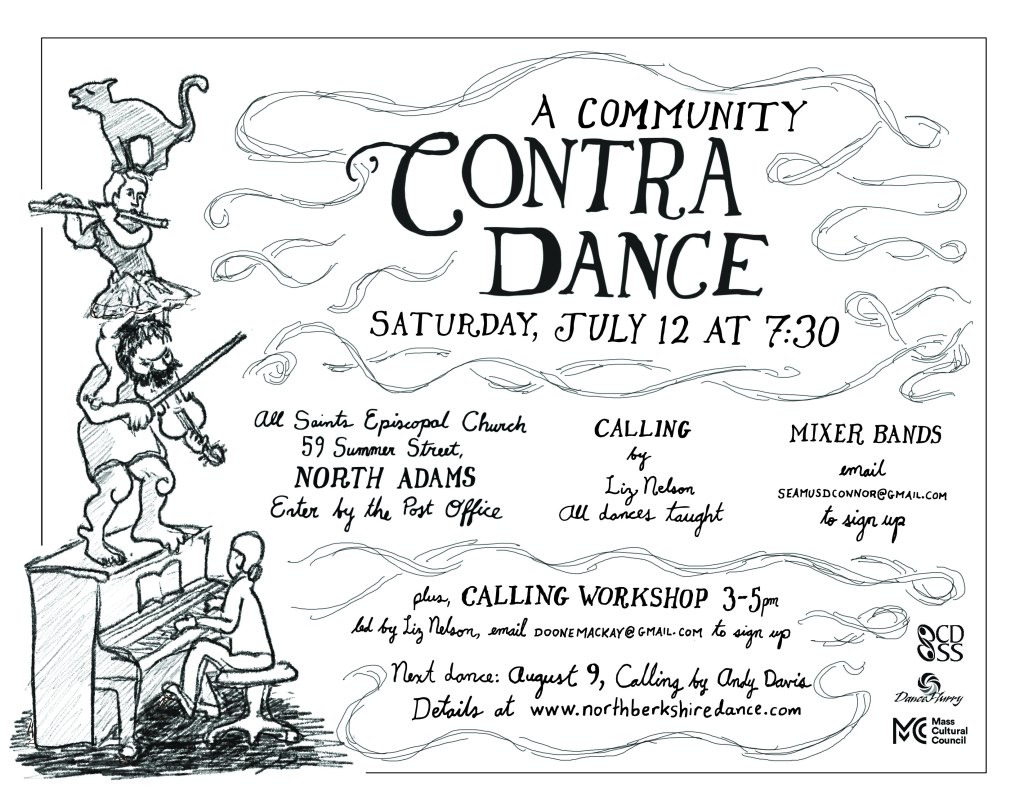 A COMMUNITY
CONTRA
DANCE
SATURDAY, JULY 12 AT 7:30
All Saints Episcopal Church
59 Summer Street,
NORTH ADAMS
Enter by the Post Office
CALLING
by
Liz Nelson
All dances taught
MIXER BANDS
email
SEAMUSDCONNOR@GMAIL.COM
to sign up
plus, CALLING WORKSHOP 3-5pm
led by Liz Nelson, email DOONEMACKAY@GMAIL.COM to sign up
Next dance: August 9, Calling by Andy Davis
Details at www.northberkshiredance.com
CD
SS
Dance Flurry
MC Mass
Cultural
Council